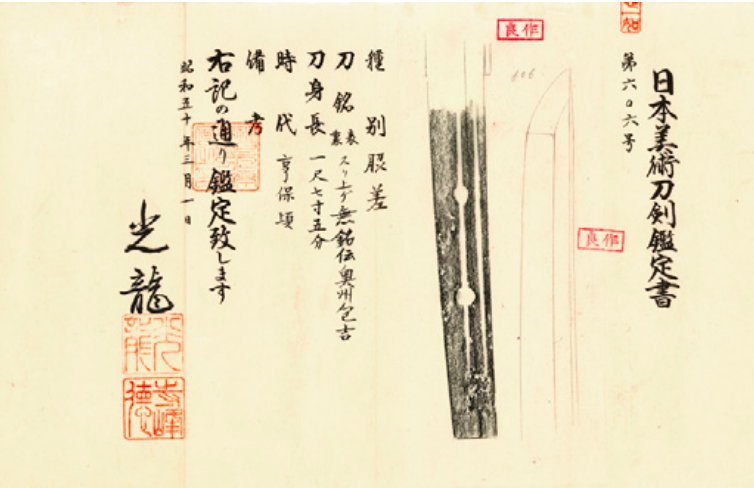 日本美術刀剣鑑定書
第六〇六号
良作
606.
良作
種別 脇差
刀銘 表裏 スリ上ゲ無銘伝奥州包吉
刀身長 一尺七寸五分
時代 享保頃
備考
右記の通り鑑定致します
昭和五十年三月一日
光龍